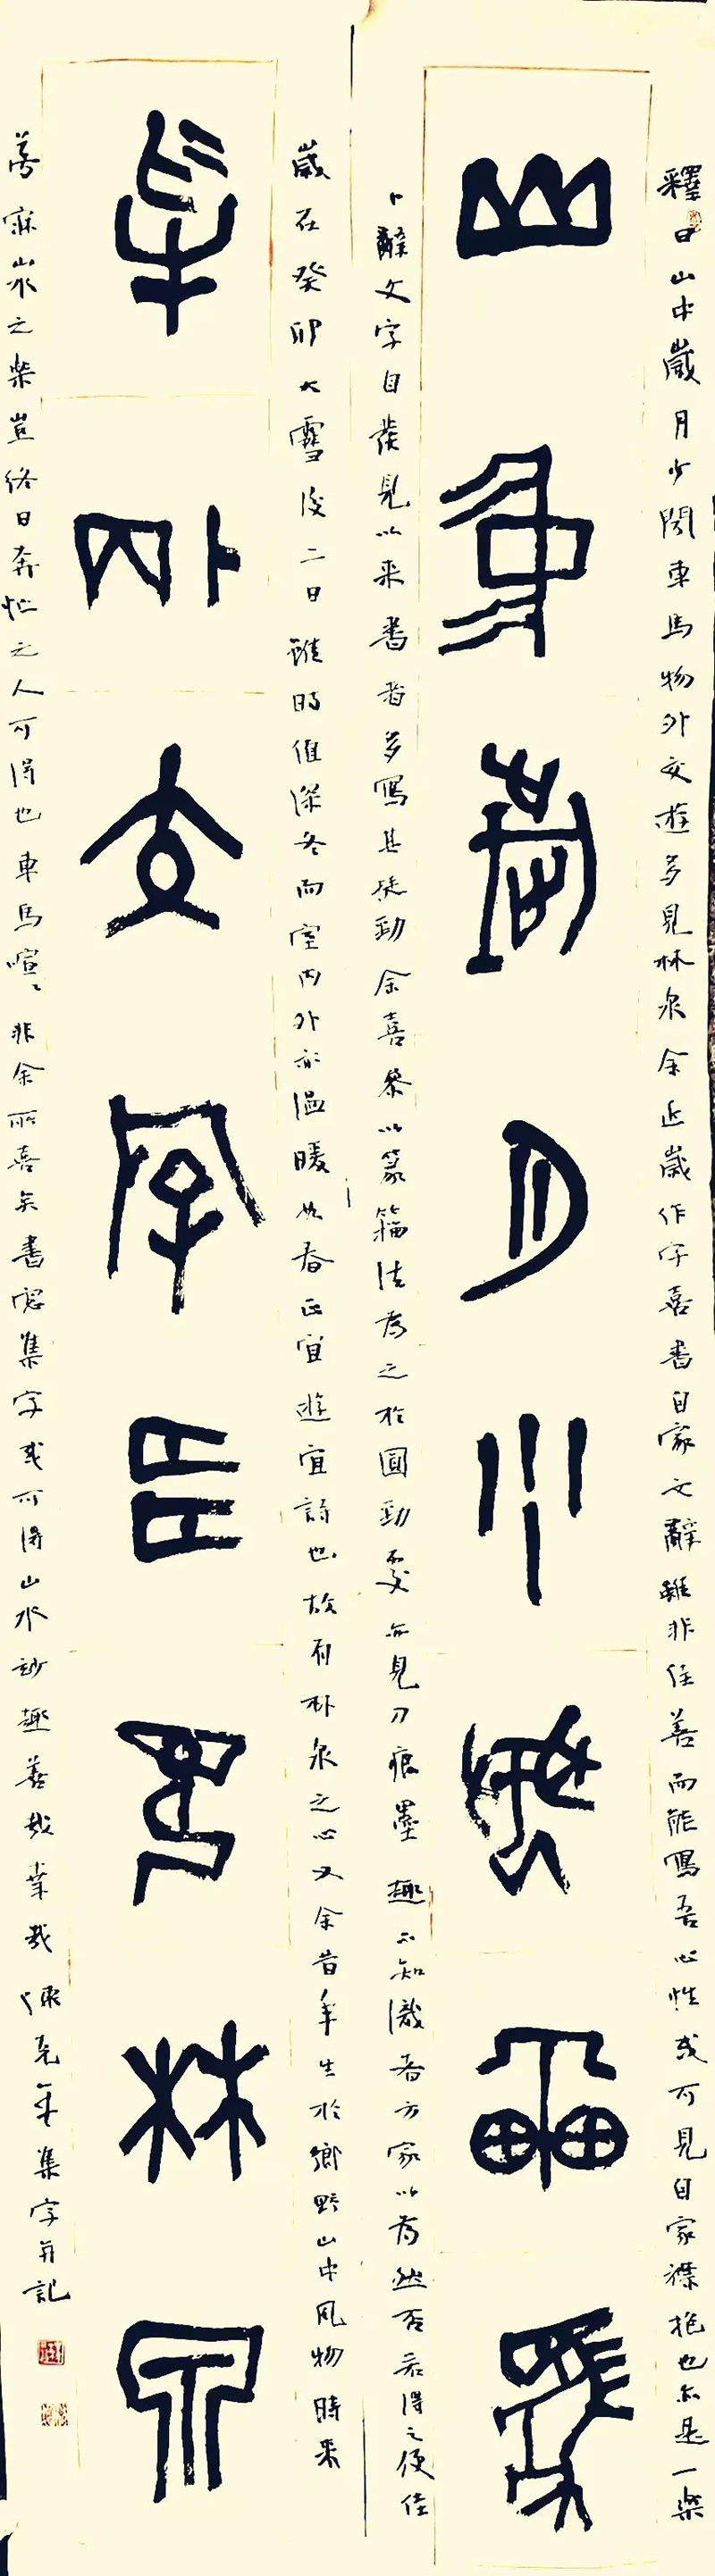 釋曰山中歲月少聞車馬物外交遊多見林泉余近歲作字喜書自家文辭雖非佳善而能寫吾心性或可見自家襟抱也亦是一樂
山中歲月少聞車馬
卜辭文字自發見以來書者多寫其挺勁余喜參以篆籀法為之於圓勁處亦見刀痕墨趣不知識者方家以為然否若得之便佳
歲在癸卯大雪後二日雖時值深冬而室內外亦溫暖如春正宜遊宜詩也故有林泉之心又余昔年生於鄉野山中風物時來
物外交遊多見林泉
夢寐山泉之樂豈終日奔忙之人可得也車馬喧喧非余所喜矣書窗集字或可得山水妙趣善哉幸哉陳克年集字并記